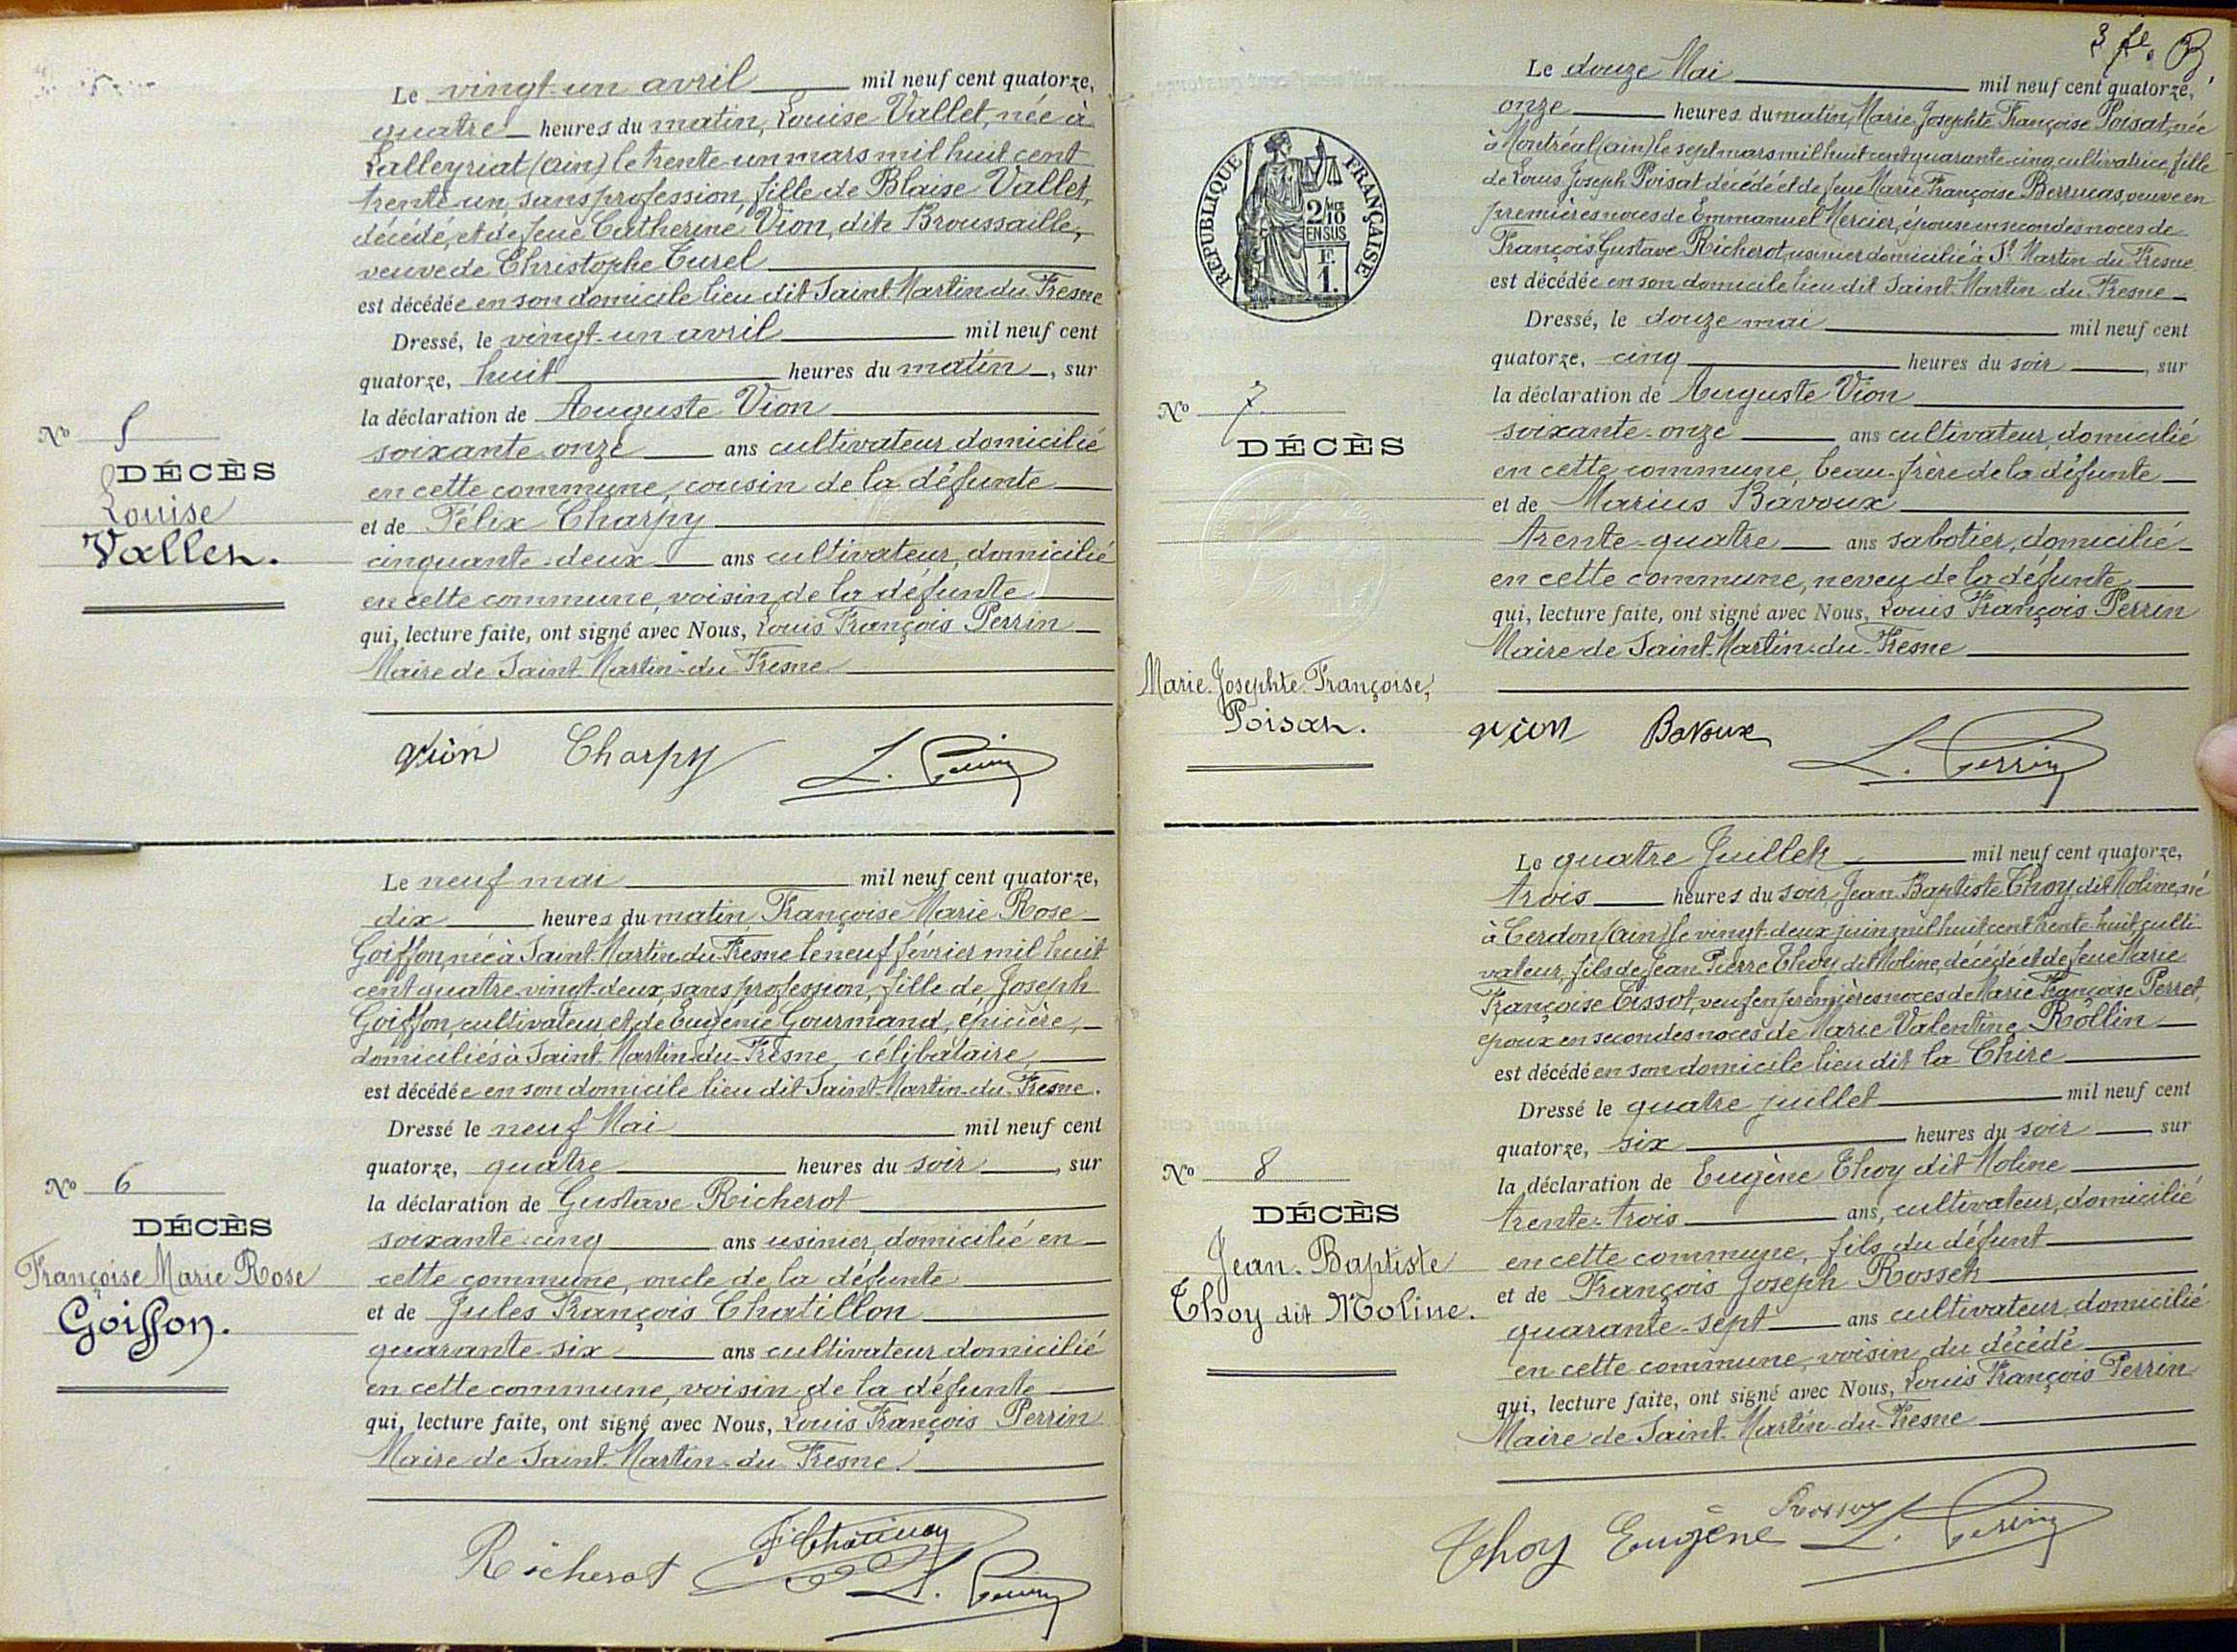 Le vingt-un avril mil neuf cent quatorze,
quatre heures du matin, Louise Vallet, née à
Lalleyriat (Ain) le trente-un mars mil huit cent
trente un, sans profession, fille de Blaise Vallet,
décédé, et de feue Catherine Vion, dite Broussaille,
veuve de Christophe Curel
est décédée en son domicile lieu dit Saint-Martin du Fresne
Dressé, le vingt-un avril mil neuf cent
quatorze, huit heures du matin, sur
la déclaration de Auguste Vion
soixante onze ans cultivateur, domicilié
en cette commune, cousin de la défunte
et de Félix Charpy
cinquante-deux ans cultivateur, domicilié
en cette commune, voisin de la défunte
qui, lecture faite, ont signé avec Nous, Louis François Perrin
Maire de Saint-Martin-du-Fresne
Nº 5
DÉCÈS
Louise
Vallet.
Vion Charpy L. Perrin
Le neuf mai mil neuf cent quatorze,
dix heures du matin, Françoise Marie Rose
Goiffon, née à Saint-Martin-du-Fresne le neuf février mil huit
cent quatre-vingt-deux, sans profession, fille de Joseph
Goiffon, cultivateur, et de Eugénie Gourmand, épicière,
domiciliés à Saint-Martin-du-Fresne, célibataire
est décédée en son domicile lieu dit Saint-Martin-du-Fresne.
Dressé le neuf Mai mil neuf cent
quatorze, quatre heures du soir, sur
la déclaration de Gustave Richerot
soixante-cinq ans usinier, domicilié en
cette commune, oncle de la défunte
et de Jules François Chatillon
quarante-six ans cultivateur domicilié
en cette commune, voisin de la défunte
qui, lecture faite, ont signé avec Nous, Louis François Perrin
Maire de Saint-Martin-du-Fresne.
Nº 6
DÉCÈS
Françoise Marie Rose
Goiffon.
Richerot Chatillon L. Perrin
3 fe.
Le douze Mai mil neuf cent quatorze,
onze heures du matin, Marie Josephte Françoise Poisat, née
à Montréal (Ain) le sept mars mil huit cent quarante-cinq, cultivatrice, fille
de Louis Joseph Poisat décédé et de feue Marie Françoise Berrucas, veuve en
premières noces de Emmanuel Mercier, épouse en secondes noces de
François Gustave Richerot, usinier domicilié à St Martin du Fresne
est décédée en son domicile lieu dit Saint-Martin-du-Fresne
Dressé, le douze mai mil neuf cent
quatorze, cinq heures du soir, sur
la déclaration de Auguste Vion
soixante-onze ans cultivateur, domicilié
en cette commune, beau-frère de la défunte
et de Marius Bavoux
trente-quatre ans sabotier, domicilié
en cette commune, neveu de la défunte
qui, lecture faite, ont signé avec Nous, Louis François Perrin
Maire de Saint-Martin-du-Fresne
RÉPUBLIQUE FRANÇAISE
2/10
EN SUS
F.
1.
Nº 7
DÉCÈS
Marie-Josephte-Françoise,
Poisat.
Vion Bavoux L. Perrin
Le quatre Juillet mil neuf cent quatorze,
trois heures du soir, Jean Baptiste Thoy, dit Moline, né
à Cerdon (Ain) le vingt-deux juin mil huit cent trente-huit, culti-
vateur, fils de Jean Pierre Thoy dit Moline, décédé et de feue Marie
Françoise Tissot, veuf en premières noces de Marie Françoise Perret,
époux en secondes noces de Marie Valentine Rollin
est décédé en son domicile lieu dit la Chire
Dressé le quatre juillet mil neuf cent
quatorze, six heures du soir, sur
la déclaration de Eugène Thoy dit Moline
trente-trois ans, cultivateur, domicilié
en cette commune, fils du défunt
et de François Joseph Rosset
quarante-sept ans cultivateur, domicilié
en cette commune, voisin du décédé
qui, lecture faite, ont signé avec Nous, Louis François Perrin
Maire de Saint-Martin-du-Fresne
Nº 8
DÉCÈS
Jean-Baptiste
Thoy dit Moline.
Thoy Eugène Rosset L. Perrin